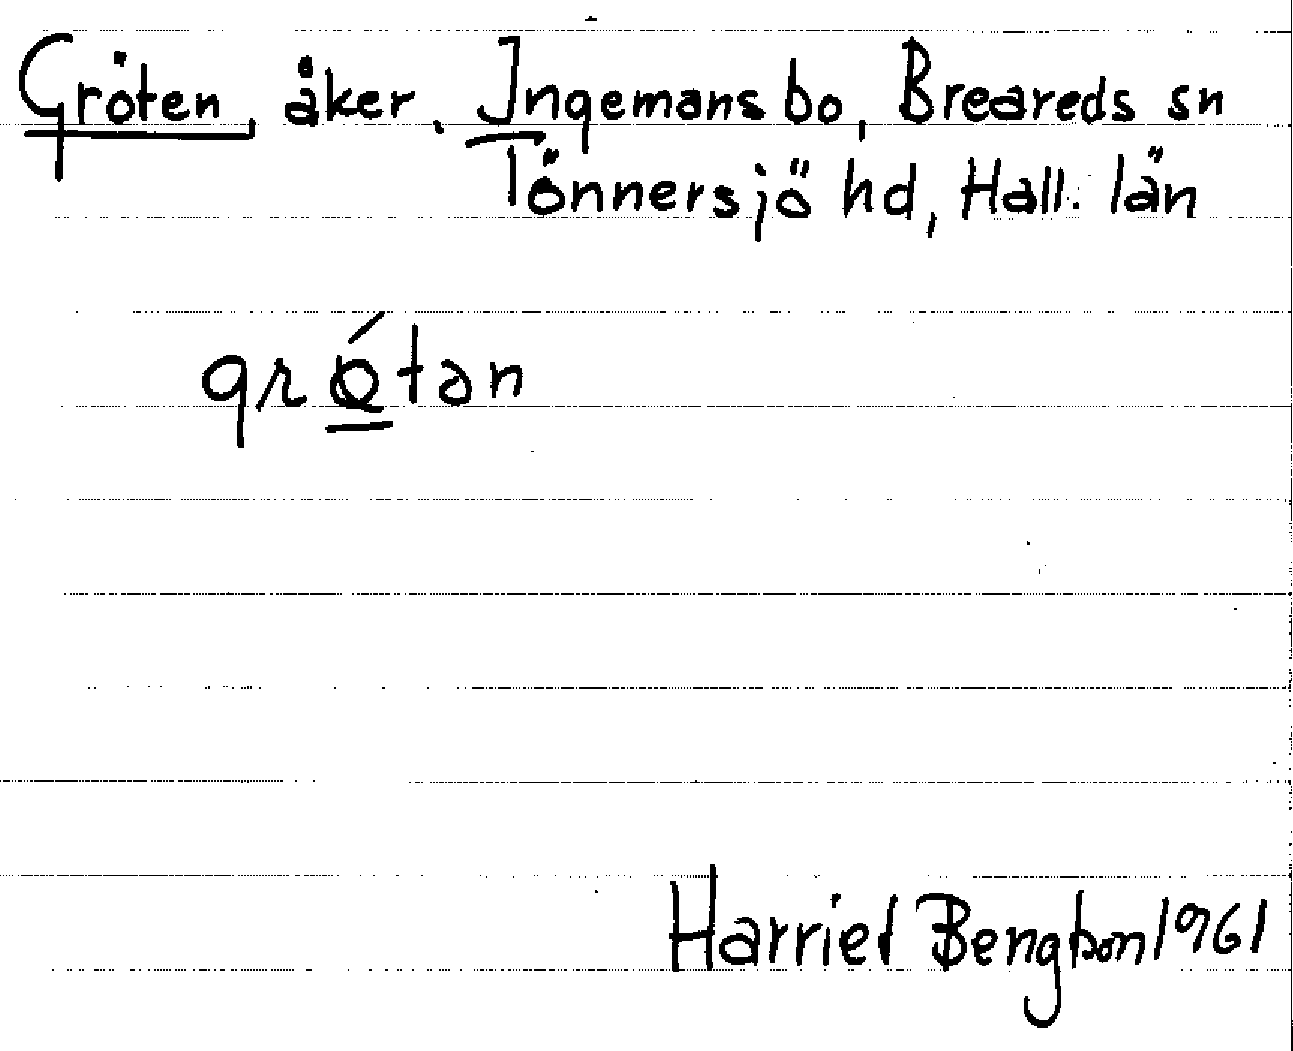 Gröten, åker, Ingemansbo, Breareds sn
Tönnersjö hd, Hall. län
grǿtən
Harriet Bengtson 1961